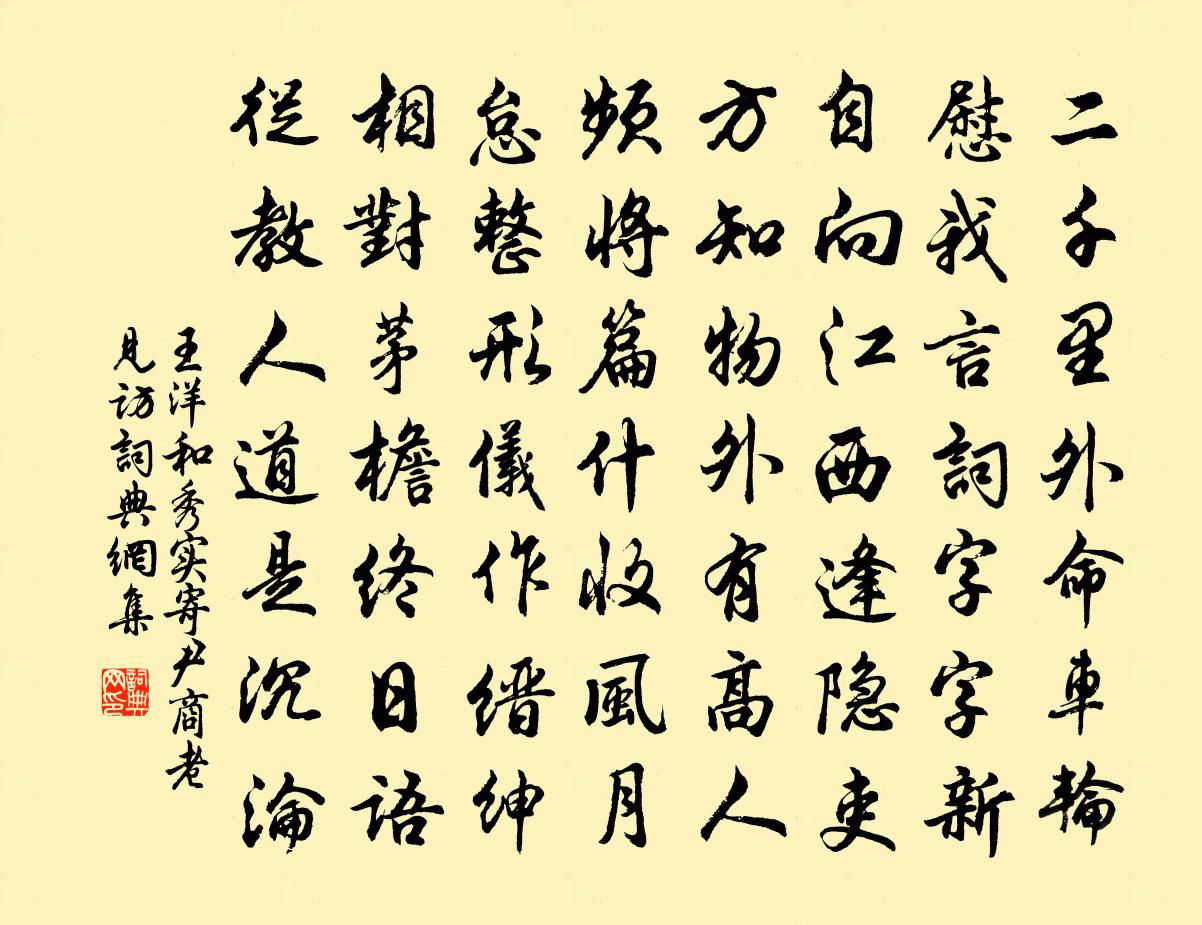 二千里外命車輪
慰我言詞字字新
自向江西逢隐吏
方知物外有高人
頻將篇什收風月
怠整形儀作縉紳
相對茅檐終日語
從教人道是沉淪
王洋和秀实寄尹商老
見訪詞典網集
詞典
网印